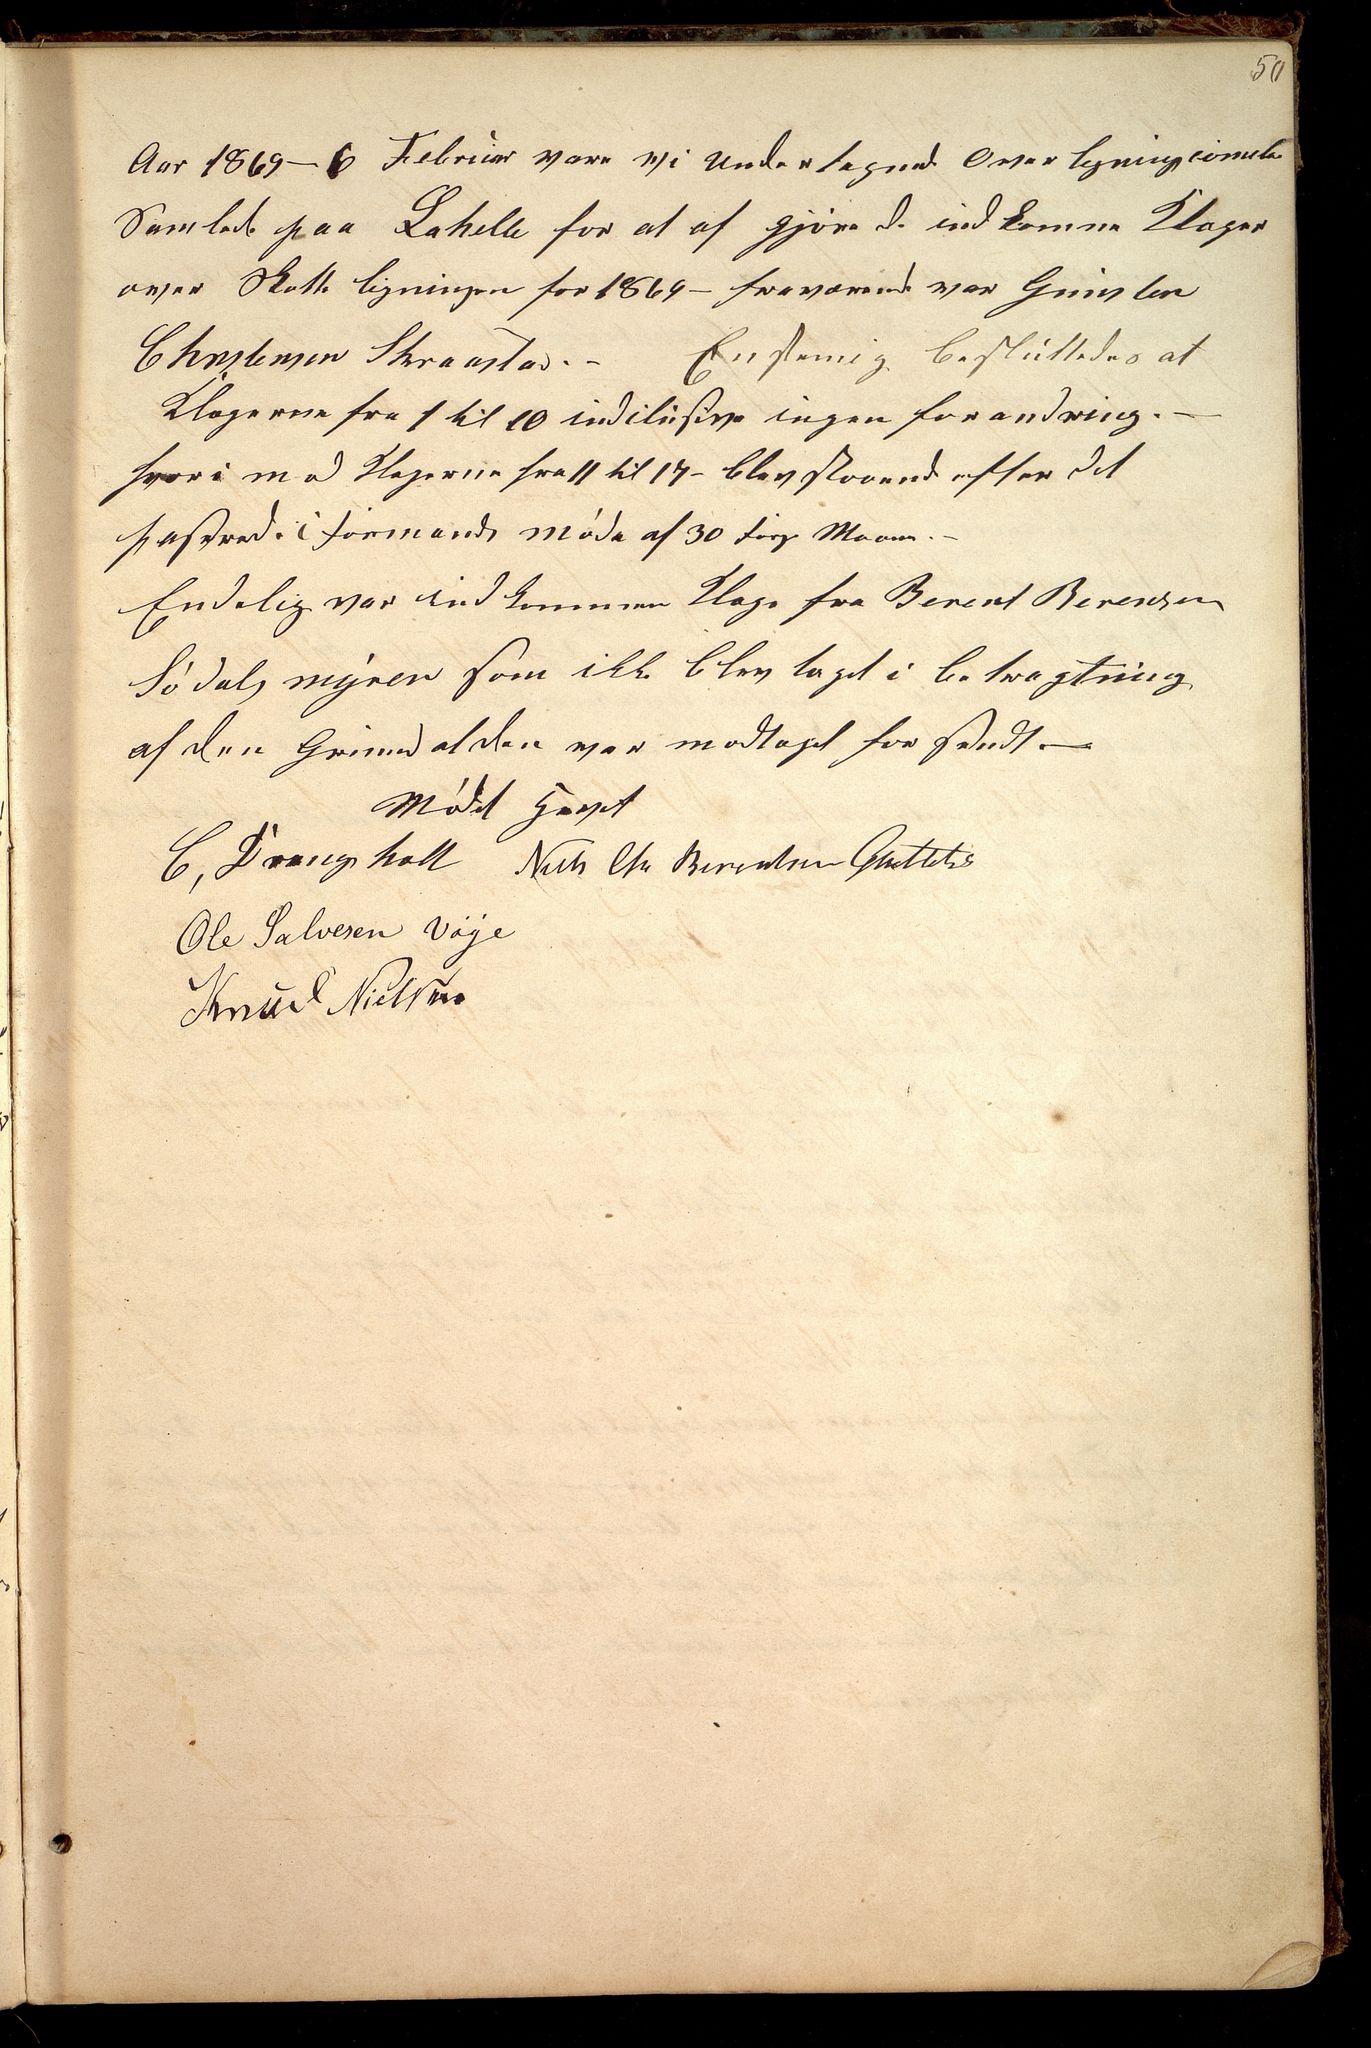 50
Aar 1869 – 6 Februar vare vi undertegnede Overligningscomite
Samlede paa Lahelle for at afgjøre de indkomne Klager
over Skatteligningen for 1869 – fraværende var
Christensen Skraastad. – Enstemig besluttedes at
Klagerne fra 1 til 10 ingen forandring. –
hvorimod Klagerne fra 11 til 17 – blev staaende efter det
passerede i Formands møde af 30 f. Maaned. –
Endelig var indkommen Klage fra Berent Berensen
Södalsmyren som ikke blev taget i betragtning
af den Grund at den var modtaget for sendt. –
Mödet Hevet
C, Drangsholt Niels Chr Berentsen
Ole Salvesen Vöje
Knud Nielsen